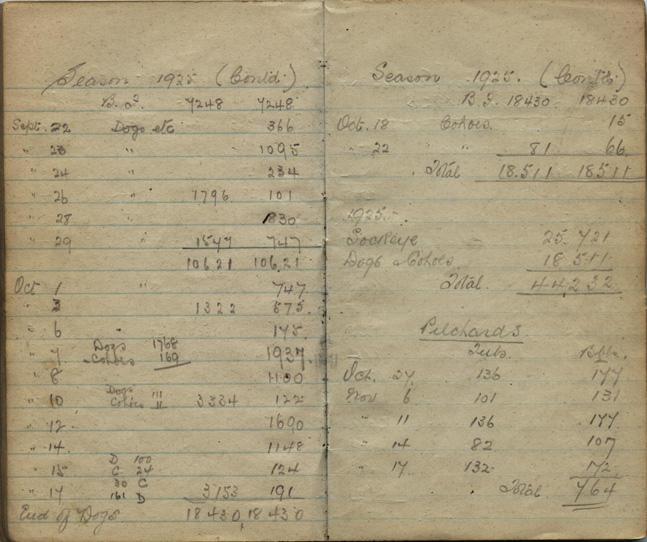 Season 1925 (Contd.)
B. F. 7248 7248
Sept. 22 Dogs etc 366
" 23 " 1095
" 24 " 234
" 26 " 1796 101
" 28 830
" 29 " 1577 747
10621 106,21
Oct 1 " 747
" 3 1322 575
" 6 " 175
" 7 Dogs 1768
Cohoes 169 1937
" 8 1100
" 10 Dogs 111
Cohoes 11 3334 122
" 12 1690
" 14 1148
" 15 D 100
C 24 124
" 17 30 C
161 D 3153 191
End of Dogs 18430 18430
Season 1925. (Contd.)
B. F. 18430 18430
Oct. 18 Cohoes. 15
" 22 " " 81 66
Total 18.511 18511
1925.
Sockeye 25.721
Dogs & Cohoes 18.511
Total. 44,232
Pilchards
Tubs. Bbls.
Oct. 27 136 177
Nov 6 101 131
" 11 136 177
" 14 82 107
" 17 132 172
Total 764